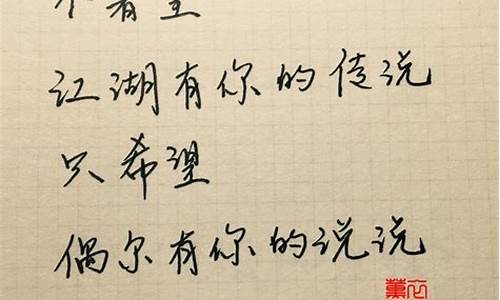 江湖有你的传说
只希望
偶尔有你的说说